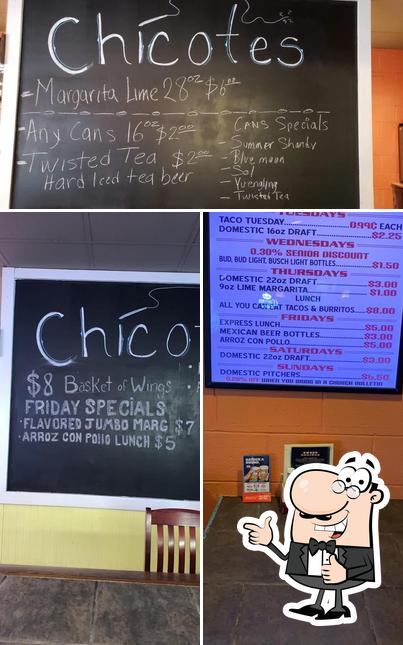 Chicotes
- Margarita Lime 28oz $6.00
- Any Cans 16oz $2.00
- Twisted Tea $2.00
Hard Iced tea beer
CANS Specials
- Summer Shandy
- Blue moon
- Sol
- Yuengling
- Twisted Tea
Chico
$8 Basket of Wings
FRIDAY SPECIALS
• FLAVORED JUMBO MARG $7
• ARROZ CON POLLO LUNCH $5
TUESDAYS
TACO TUESDAY 0.99¢ EACH
DOMESTIC 16oz DRAFT $2.25
WEDNESDAYS
0.30% SENIOR DISCOUNT
BUD, BUD LIGHT, BUSCH LIGHT BOTTLES $1.50
THURSDAYS
DOMESTIC 22oz DRAFT $3.00
9oz LIME MARGARITA $1.00
LUNCH
ALL YOU CAN EAT TACOS & BURRITOS $8.00
FRIDAYS
EXPRESS LUNCH $5.00
MEXICAN BEER BOTTLES $3.00
ARROZ CON POLLO $5.00
SATURDAYS
DOMESTIC 22oz DRAFT $3.00
SUNDAYS
DOMESTIC PITCHERS $6.50
WHEN YOU BRING IN A CHURCH BULLETIN